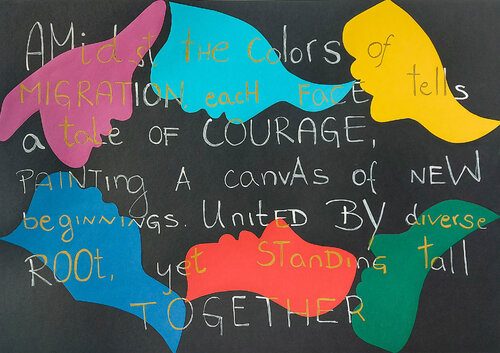 AMidst tHe Colors of
MIGRATION, eacH FACE tells
a tale OF COURAGE,
PAINTING A canvAs of NEW
beginnings. United BY diverse
ROOt, yet STanDing tall
TOGETHER